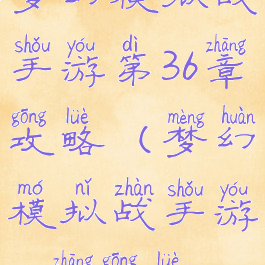 梦幻模拟战
shǒu yóu dì zhāng
手游第36章
gōng lüè mèng huàn
攻略（梦幻
mó nǐ zhàn shǒu yóu
模拟战手游
zhāng gōng lüè